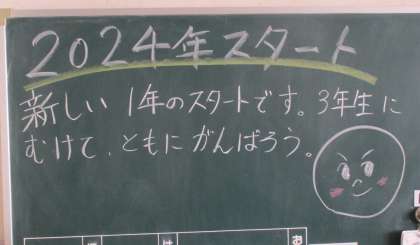 2024年スタート
新しい1年のスタートです。3年生に
むけて、ともにがんばろう。